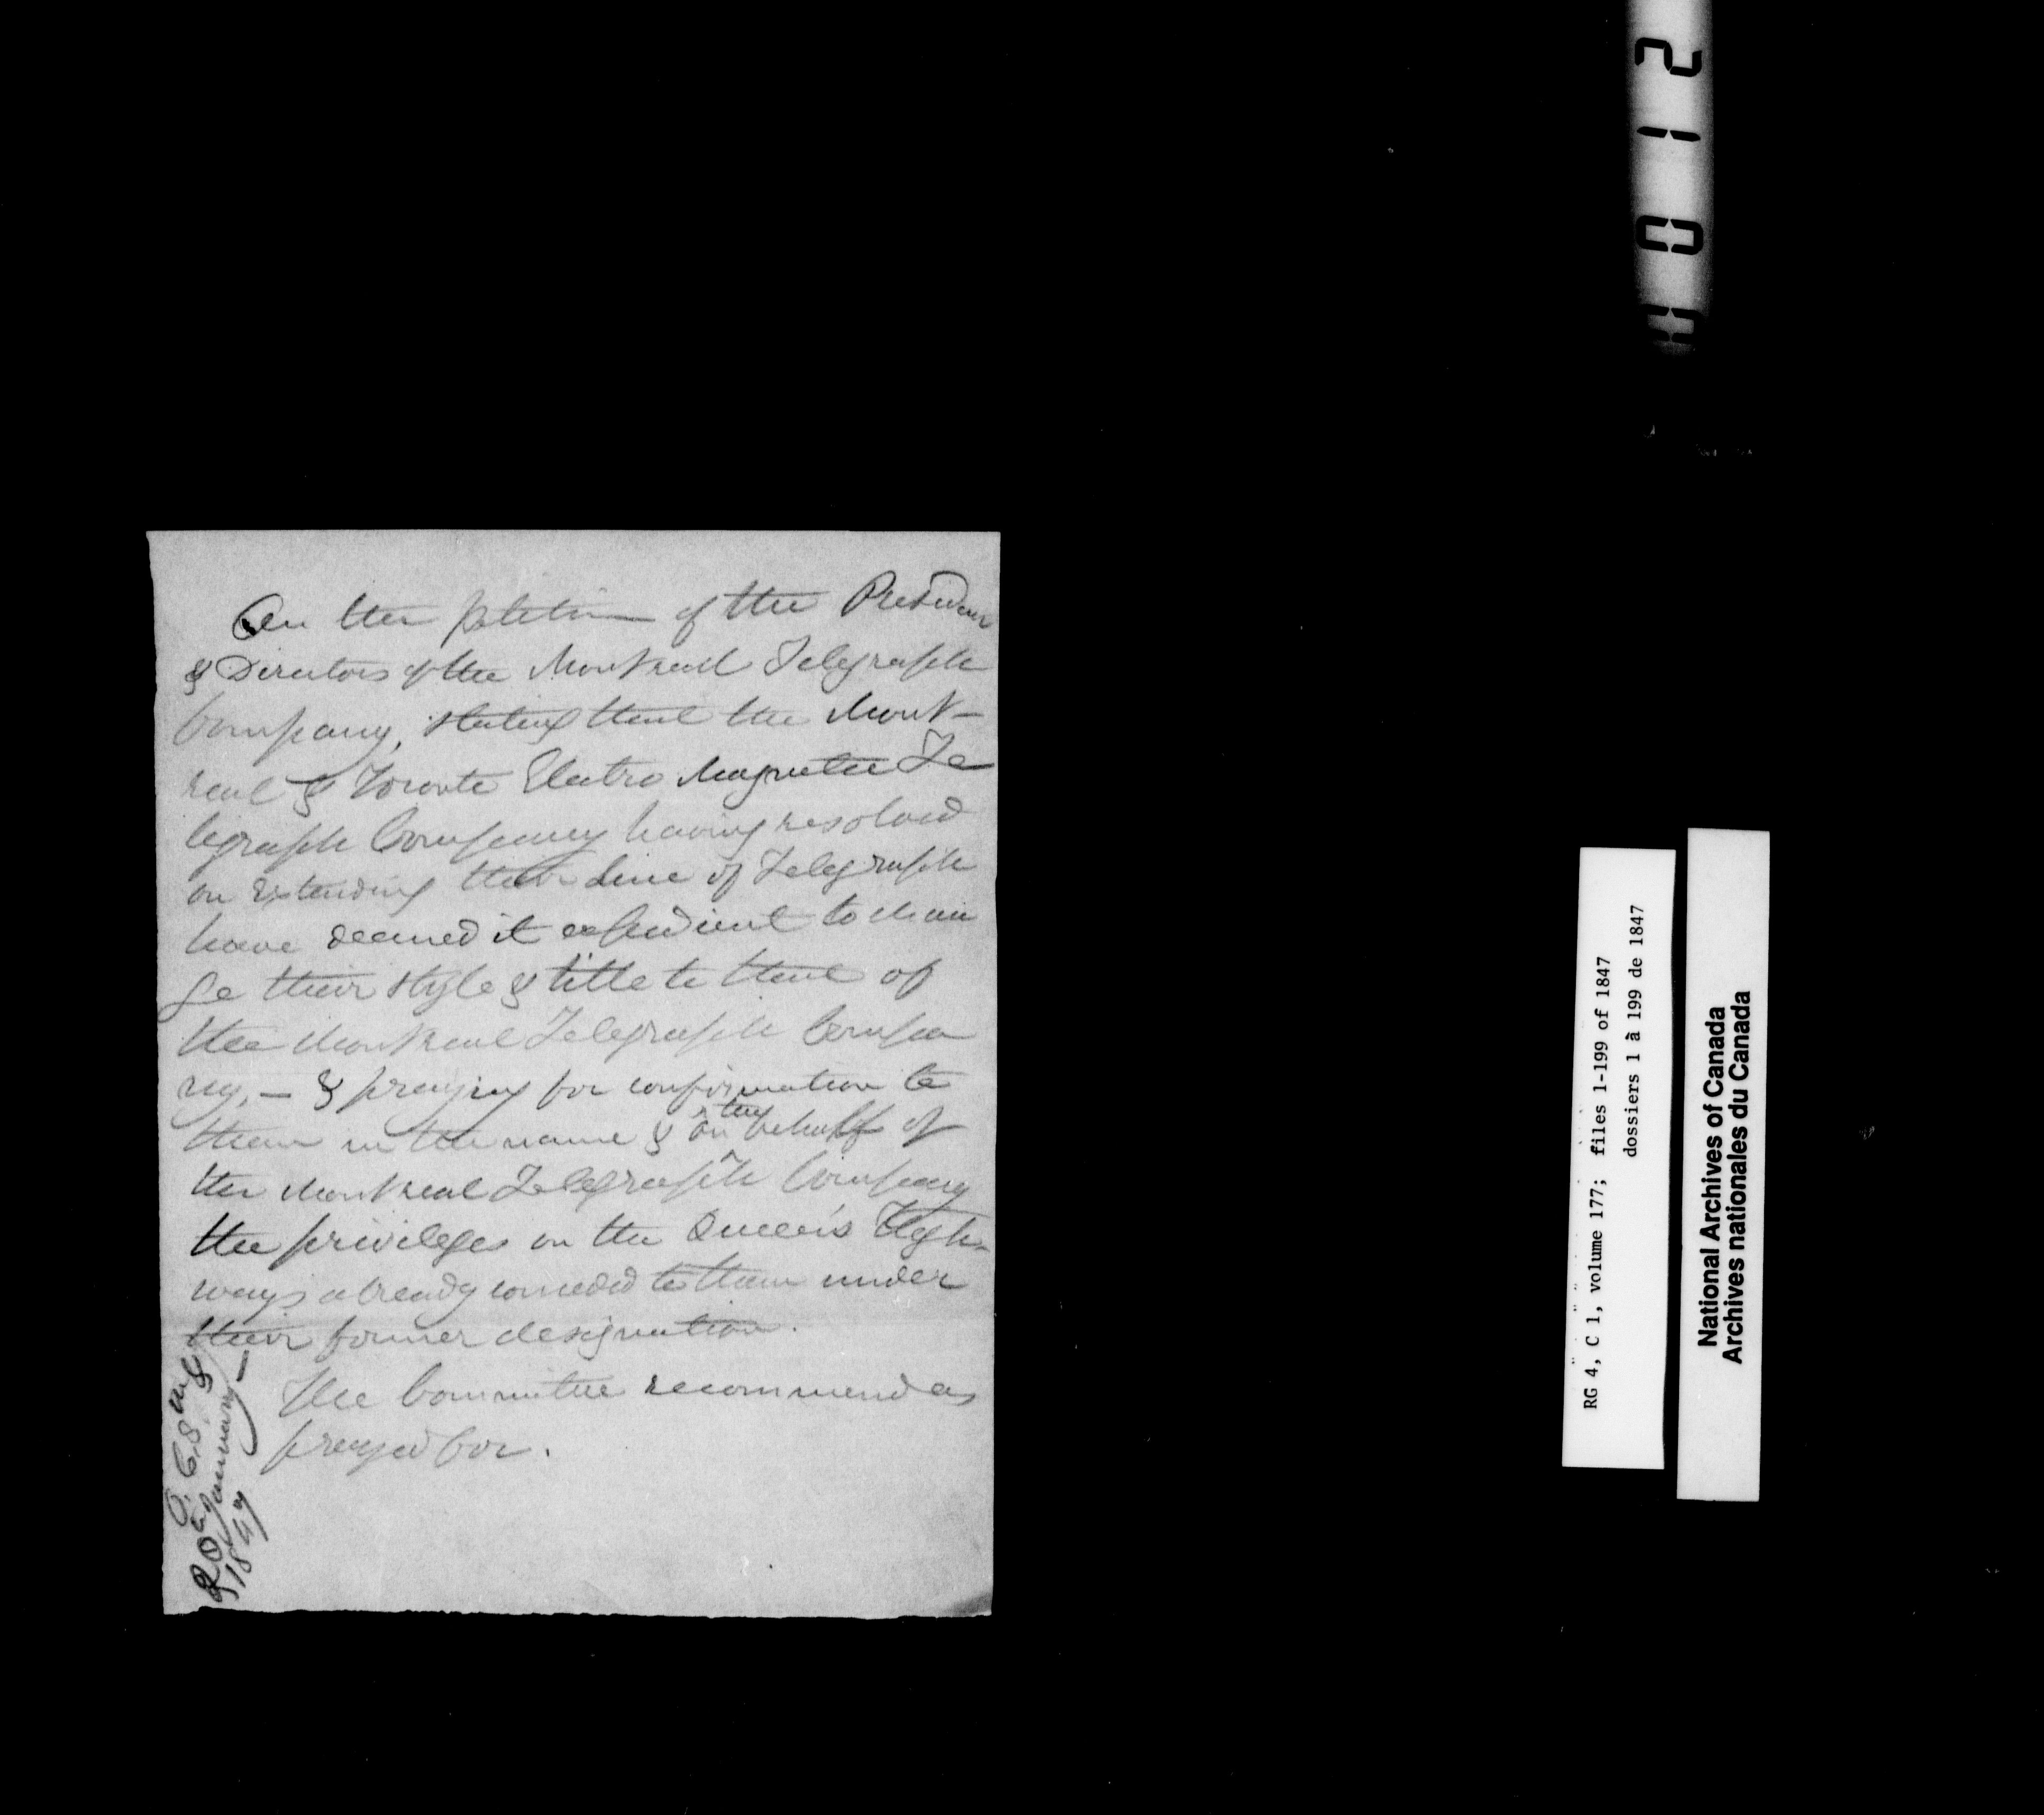 On the petition of the President
& Directors of the Montreal Telegraph
Company, stating that the Mont-
real & Toronto Electro Magnetic Te
legraph Company having resolved
on extending their Line of Telegraph
have deemed it expedient to chan
ge their style & title to that of
the Montreal Telegraph Compa
ny, — & praying for confirmation to
them in the name & on the behalf of
the Montreal Telegraph Company
the privileges on the Queen's High-
ways already conceded to them under
their former designation.
The Committee recommend as
prayed for.
20th January
1847
0012
RG 4, C 1, volume 177; files 1-199 of 1847
dossiers 1 à 199 de 1847
National Archives of Canada
Archives nationales du Canada